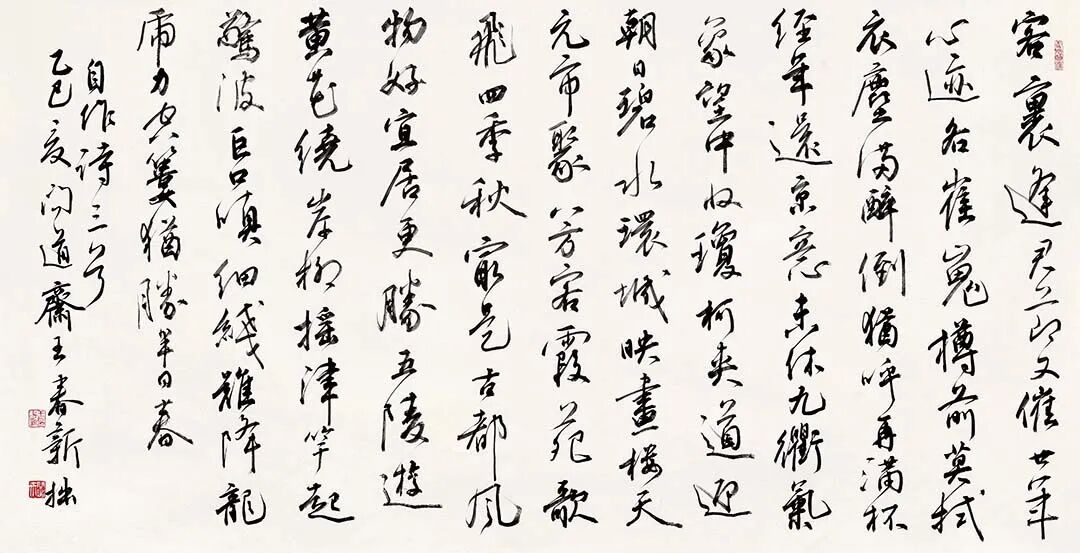 客裏逢君節又催廿年
心迹各崔嵬樽前莫拭
衣塵滿醉倒猶呼再滿杯
經年還京意未休九衢氣
象望中收瓊柯夾道迎
朝日碧水環城映畫樓天
元市聚八方客霞苑歌
飛四季秋最是古都風
物好宜居更勝五陵遊
黄花繞岸柳摇津竿起
驚波巨口嗔細綫難降龍
虎力空簍猶勝半日春
自作詩三首
乙巳夏問道齋王春新拙